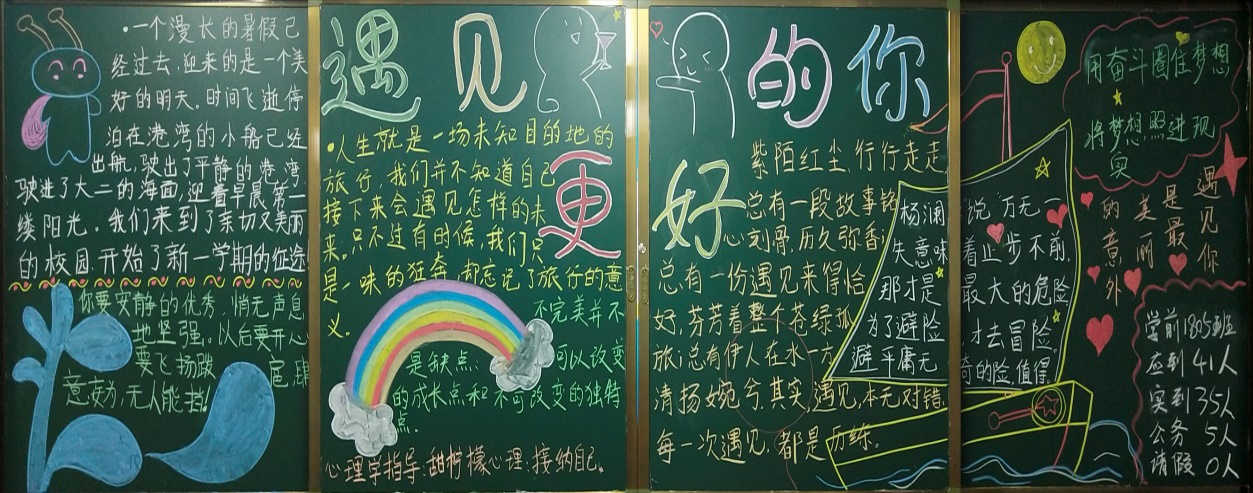 •一个漫长的暑假已
经过去,迎来的是一个美
好的明天。时间飞逝,停
泊在港湾的小船已经
出航,驶出了平静的港湾,
驶进了大二的海面,迎着早晨第一
缕阳光。我们来到了亲切又美丽
的校园,开始了新一学期的征途
你要安静的优秀,悄无声息
地坚强。以后要开心
要飞扬跋扈,肆
意妄为,无人能挡!
遇见
更
好
的你
•人生就是一场未知目的地的
旅行,我们并不知道自己
接下来会遇见怎样的未
来。只不过有时候,我们只
是一味的狂奔,却忘记了旅行的意
义。
不完美并不
是缺点
可以改变
的成长点和不可改变的独特
点。
心理学指导:甜柠檬心理:接纳自己。
紫陌红尘,行行走走,
总有一段故事铭
心刻骨,历久弥香;
总有一份遇见来得恰
好,芬芳着整个苍绿孤
旅;总有伊人在水一方
清扬婉兮。其实,遇见,本无对错,
每一次遇见,都是历练。
杨澜说"万无一
失意味着止步不前,
那才是最大的危险
为了避险才去冒险。
避平庸无奇的险,值得
用奋斗圈住梦想
将梦想照进现
实
遇见你
是最
美丽
的意外
学前1805班
应到41人
实到35人
公务 5人
请假 0人